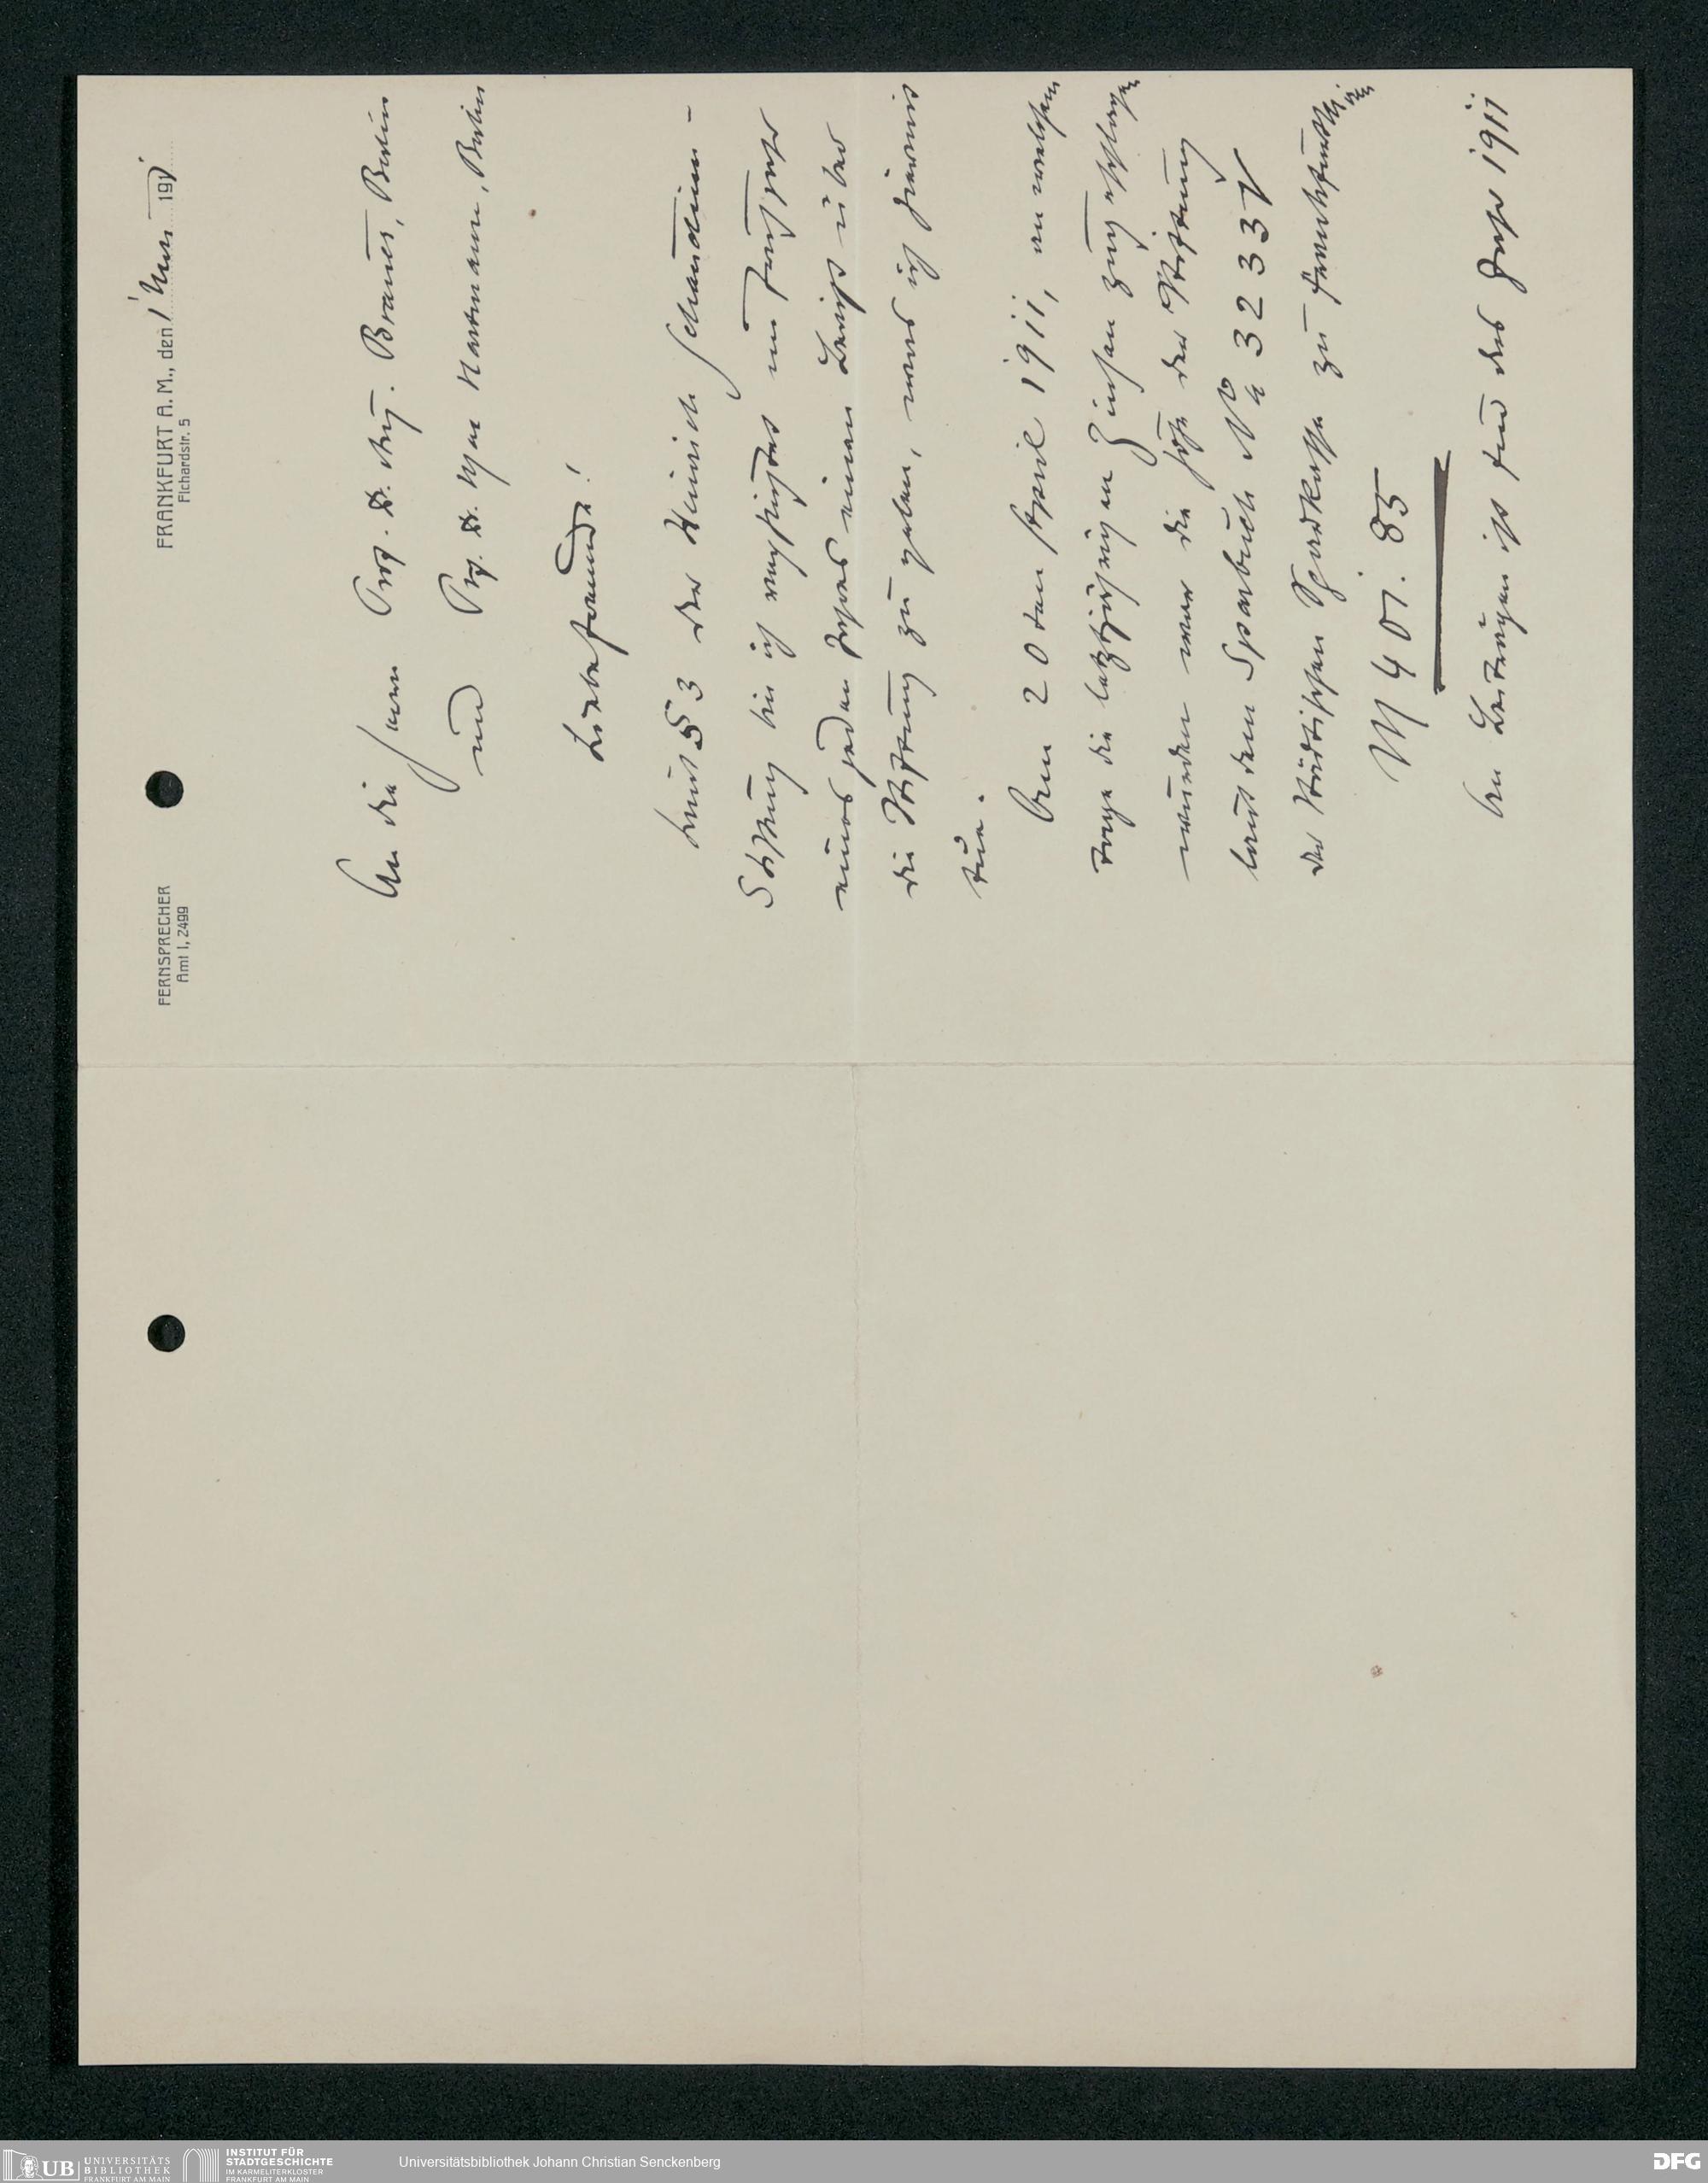 FERNSPRECHER
Amt I, 2499
FRANKFURT A. M., den 1 191
Fichardstr. 5
An die Herrn Prof. Dr. Aug. Brauer, Berlin
und Prof. Dr. Max Hartmann, Berlin
Liebe Freunde!
Laut § 3 der Heinrich Schaudinn-
Stiftung bin ich verpflichtet im
eines jeden Jahres einen Bericht über
die Stiftung zu geben, was ich hiermit
tue.
Am 20ten April 1911, an welchem
Tage die letztjährigen Zinsen zugeschlagen
wurden war die Höhe der Stiftung
laut dem Sparbuch No 32337
der Städtischen Sparkasse zu Frankfurt
M 401. 85
An Beiträgen ist für das Jahr 1911
UB UNIVERSITÄTS
BIBLIOTHEK
FRANKFURT AM MAIN
INSTITUT FÜR
STADTGESCHICHTE
IM KARMELITERKLOSTER
FRANKFURT AM MAIN
Universitätsbibliothek Johann Christian Senckenberg
DFG